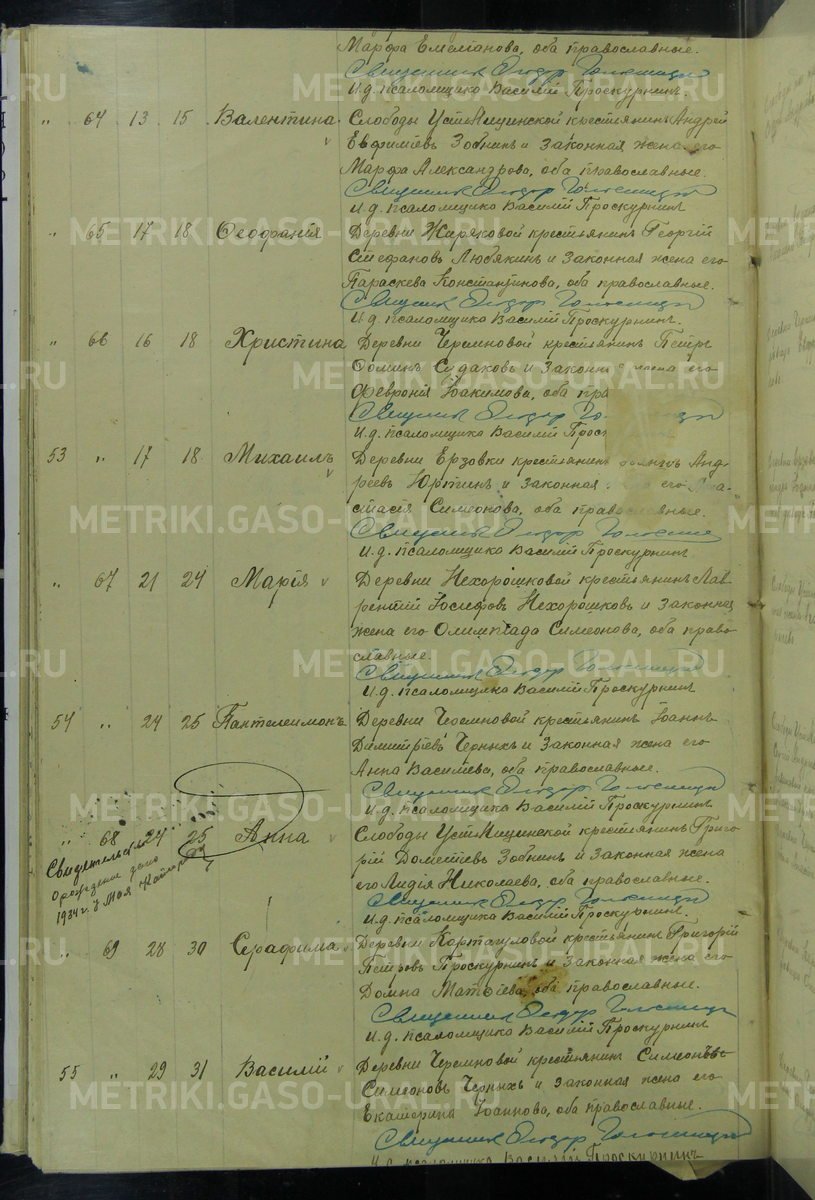 Марфа Емелианова, оба православные.
Священник
И.д. псаломщика Василій Проскурнинъ.
„ 64 13 15 Валентина Слободы Усть Ницинской крестьянинъ Андрей
Евфиміевъ Зобнинъ и законная жена его
Марфа Александрова, оба православные.
Священник
И.д. псаломщика Василій Проскурнинъ
„ 65 17 18 Ѳеофанія Деревни Жиряковой крестьянинъ Георгій
Стефановъ Любякинъ и законная жена его
Параскева Константинова, оба православные.
Священник
И.д. псаломщика Василій Проскурнинъ.
„ 66 16 18 Христина Деревни Черемновой крестьянинъ Петръ
Ѳоминъ Судаковъ и законн жена его
Февронія Іоакимова, оба пра
Священник
И.д. псаломщика Василій Проск
53 „ 17 18 Михаилъ Деревни Ерзовки крестьянинъ Анд-
реевъ Юртинъ и законная его Ана-
стасія Симеонова, оба православные.
Священник
И.д. псаломщика Василій Проскурнинъ.
„ 67 21 24 Марія Деревни Нехорошковой крестьянинъ Лав-
рентій Іосифовъ Нехорошковъ и законная
жена его Олимпіада Симеонова, оба право-
славные.
Священник
И.д. псаломщика Василій Проскурнинъ
54 „ 24 25 Пантелеимонъ Деревни Черемновой крестьянинъ Іоаннъ
Димитріевъ Черныхъ и законная жена его
Анна Василіева, оба православные.
Священник
И.д. псаломщика Василій Проскурнинъ
„ 68 24 25 Анна Слободы Усть Ницинской крестьянинъ Григо-
рій Дометіевъ Зобнинъ и законная жена
его Лидія Николаева, оба православные.
Свидетельство
о рождении дано
1934 г. 8 мая
Священник
И.д. псаломщика Василій Проскурнинъ.
„ 69 28 30 Серафима Деревни Кортагуловой крестьянинъ Григорій
Петровъ Проскурнинъ и законная жена его
Домна Матѳіева, оба православные.
Священник
И.д. псаломщика Василій Проскурнинъ
55 „ 29 31 Василій Деревни Черемновой крестьянинъ Симеонъ
Симеоновъ Черныхъ и законная жена его
Екатерина Іоаннова, оба православные.
Священник
И.д. псаломщика Василій Проскурнинъ
METRIKI.GASO-URAL.RU